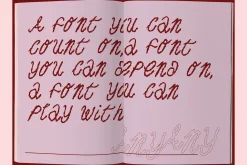 A font you can
count on, a font
you can depend on,
a font you can
play with